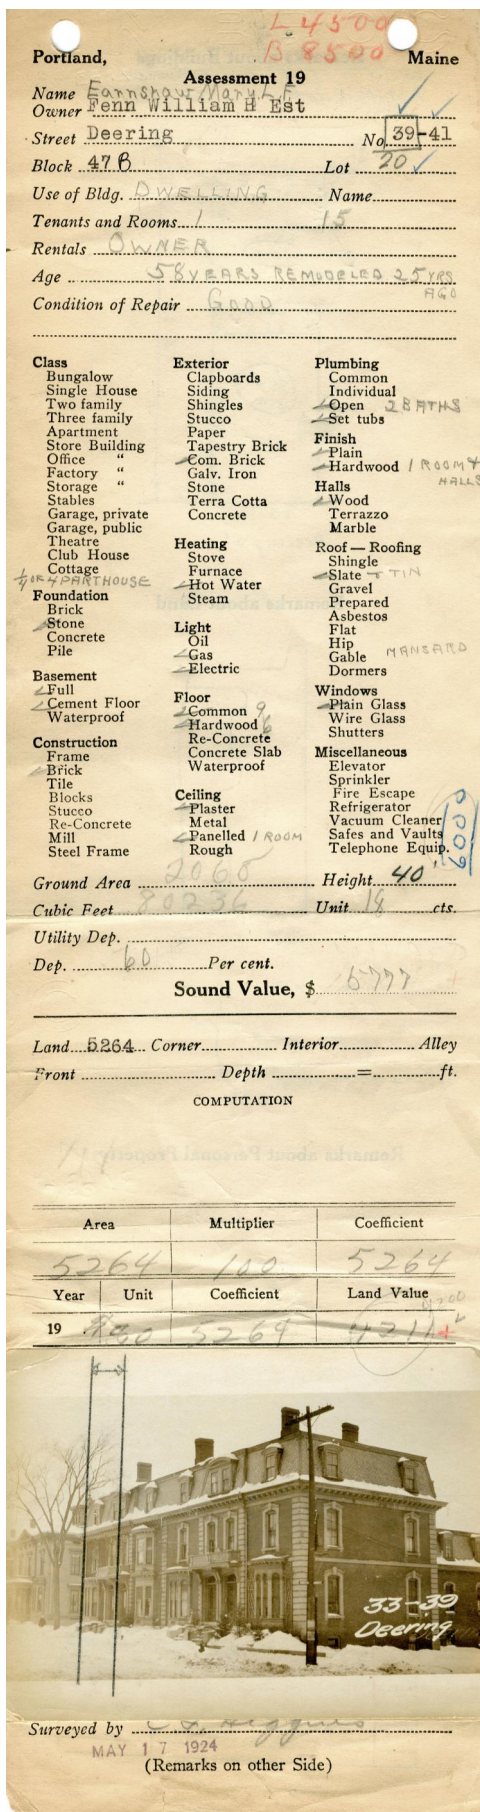 L 4500
B 8500
Portland, Maine
Assessment 19
Name Earnshaw Mary L F
Owner Fenn William H Est
Street Deering No 39-41
Block 47 B Lot 20
Use of Bldg. DWELLING Name
Tenants and Rooms 1 15
Rentals OWNER
Age 58 YEARS REMODELED 25 YRS AGO
Condition of Repair GOOD
Class
Bungalow
Single House
Two family
Three family
Apartment
Store Building
Office "
Factory "
Storage "
Stables
Garage, private
Garage, public
Theatre
Club House
Cottage
1 OF 4 PARTHOUSE
Foundation
Brick
Stone
Concrete
Pile
Basement
Full
Cement Floor
Waterproof
Construction
Frame
Brick
Tile
Blocks
Stucco
Re-Concrete
Mill
Steel Frame
Exterior
Clapboards
Siding
Shingles
Stucco
Paper
Tapestry Brick
Com. Brick
Galv. Iron
Stone
Terra Cotta
Concrete
Heating
Stove
Furnace
Hot Water
Steam
Light
Oil
Gas
Electric
Floor
Common 9
Hardwood 6
Re-Concrete
Concrete Slab
Waterproof
Ceiling
Plaster
Metal
Panelled 1 ROOM
Rough
Plumbing
Common
Individual
Open 2 BATHS
Set tubs
Finish
Plain
Hardwood 1 ROOM + HALLS
Halls
Wood
Terrazzo
Marble
Roof — Roofing
Shingle
Slate + TIN
Gravel
Prepared
Asbestos
Flat
Hip
Gable MANSARD
Dormers
Windows
Plain Glass
Wire Glass
Shutters
Miscellaneous
Elevator
Sprinkler
Fire Escape
Refrigerator
Vacuum Cleaner
Safes and Vaults
Telephone Equip.
6000
Ground Area 2060 Height 40'
Cubic Feet 80236 Unit 18 cts.
Utility Dep.
Dep. 60 Per cent.
Sound Value, $ 5777
Land 5264 Corner Interior Alley
Front Depth = ft.
COMPUTATION
Area Multiplier Coefficient
5264 100 5264
Year Unit Coefficient Land Value
4200
19 80 5264 4211
33-39
Deering
Surveyed by Higgins
MAY 17 1924
(Remarks on other Side)